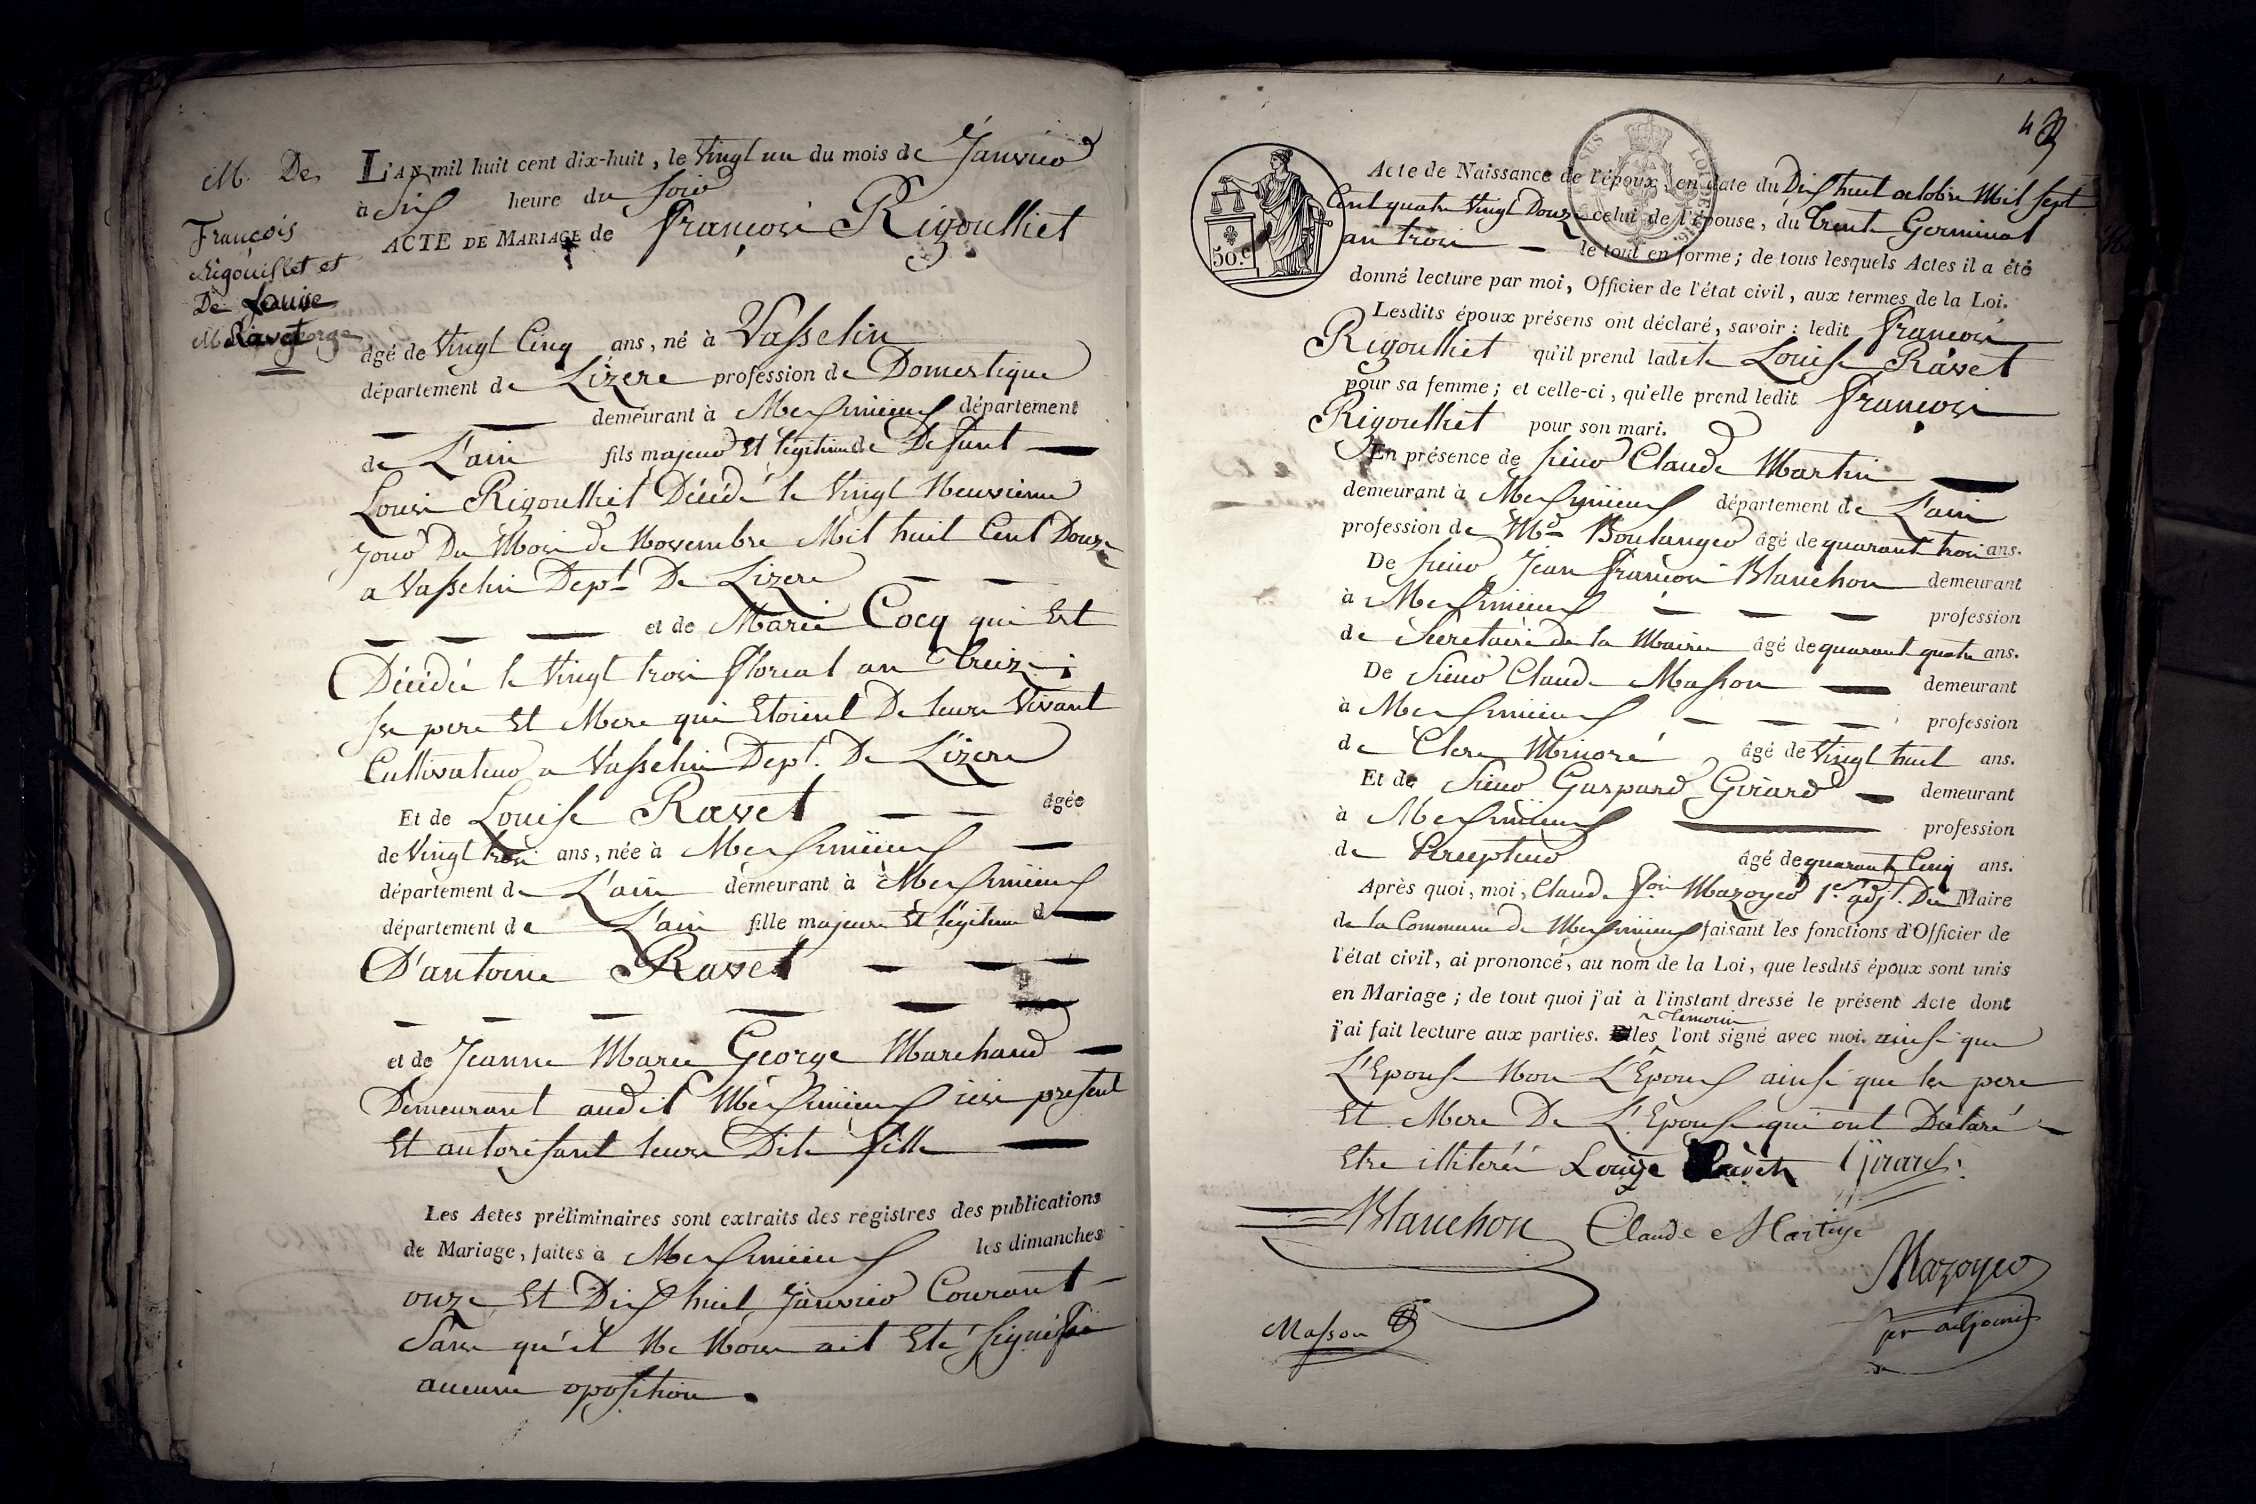 M. De
François
Rigouillet et
De Louise
Ravet
L'AN mil huit cent dix-huit, le Vingt un du mois de Janvier
à Six heure du Soir
ACTE DE MARIAGE de François Rigoulliet
âgé de Vingt Cinq ans, né à Vasselin
département de Lizere profession de Domestique
demeurant à Meximieux département
de L'ain fils majeur Et légitime de Defunt
Louis Rigoulliet Décédé le Vingt Neuvieme
Jour Du Mois de Novembre Mil huit Cent Douze
a Vasselin Dept. De Lizere
et de Marie Cocq qui Est
Décédée le Vingt trois floreal an Treize;
ses pere Et Mere qui Etoient De leurs Vivant
Cultivateurs a Vasselin Dept. De L'izere
Et de Louise Ravet âgée
de Vingt trois ans, née à Meximieux
département de L'ain demeurant à Meximieux
département de L'ain fille majeure Et légitime d
D'antoine Ravet
et de Jeanne Marie George Marchand
Demeurant audit Meximieux ici present
Et autorisant leurs Dite fille
Les Actes préliminaires sont extraits des registres des publications
de Mariage, faites à Meximieux les dimanches
onze Et Dix huit Janvier Courant
Sans qu'il Ne Nous ait Eté signifié
aucune oposition.
SUS
50.c
Acte de Naissance de l'époux, en date du Dix huit octobre Mil sept
Cent quatre Vingt Douze celui de l'épouse, du trente Germinal
an trois le tout en forme; de tous lesquels Actes il a été
donné lecture par moi, Officier de l'état civil, aux termes de la Loi.
Lesdits époux présens ont déclaré, savoir: ledit François
Rigoulliet qu'il prend ladite Louise Ravet
pour sa femme; et celle-ci, qu'elle prend ledit François
Rigoulliet pour son mari.
En présence de Sieur Claude Martin
demeurant à Meximieux département de L'ain
profession de Md Boulanger âgé de quarante trois ans.
De Sieur Jean François Blanchon demeurant
à Meximieux profession
de Secretaire de la Mairie âgé de quarante quatre ans.
De Sieur Claude Masson demeurant
à Meximieux profession
de Clerc Minoré âgé de Vingt huit ans.
Et de Sieur Gaspard Girard demeurant
à Meximieux profession
de Percepteur âgé de quarante Cinq ans.
Après quoi, moi, Claude fois Mazoyer 1er adjt. Du Maire
de la Commune de Meximieux faisant les fonctions d'Officier de
l'état civil, ai prononcé, au nom de la Loi, que lesdits époux sont unis
en Mariage; de tout quoi j'ai à l'instant dressé le présent Acte dont
témoins
j'ai fait lecture aux parties. les l'ont signé avec moi. ainsi que
L'Epouse Non L'Epoux ainsi que les pere
Et Mere De L'Epouse qui ont Déclaré
Etre illiterés Louise Ravet Girard
Blanchon Claude Martin
Mazoyer
Masson
1er adjoint